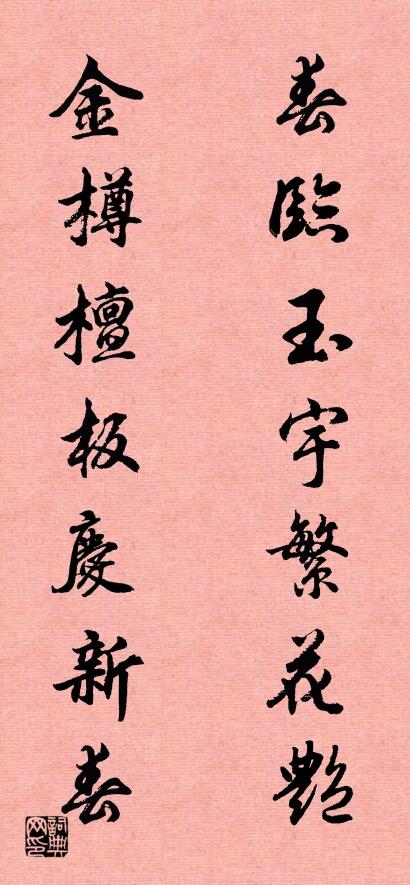 春臨玉宇繁花艷
金樽檀板慶新春
詞典網印